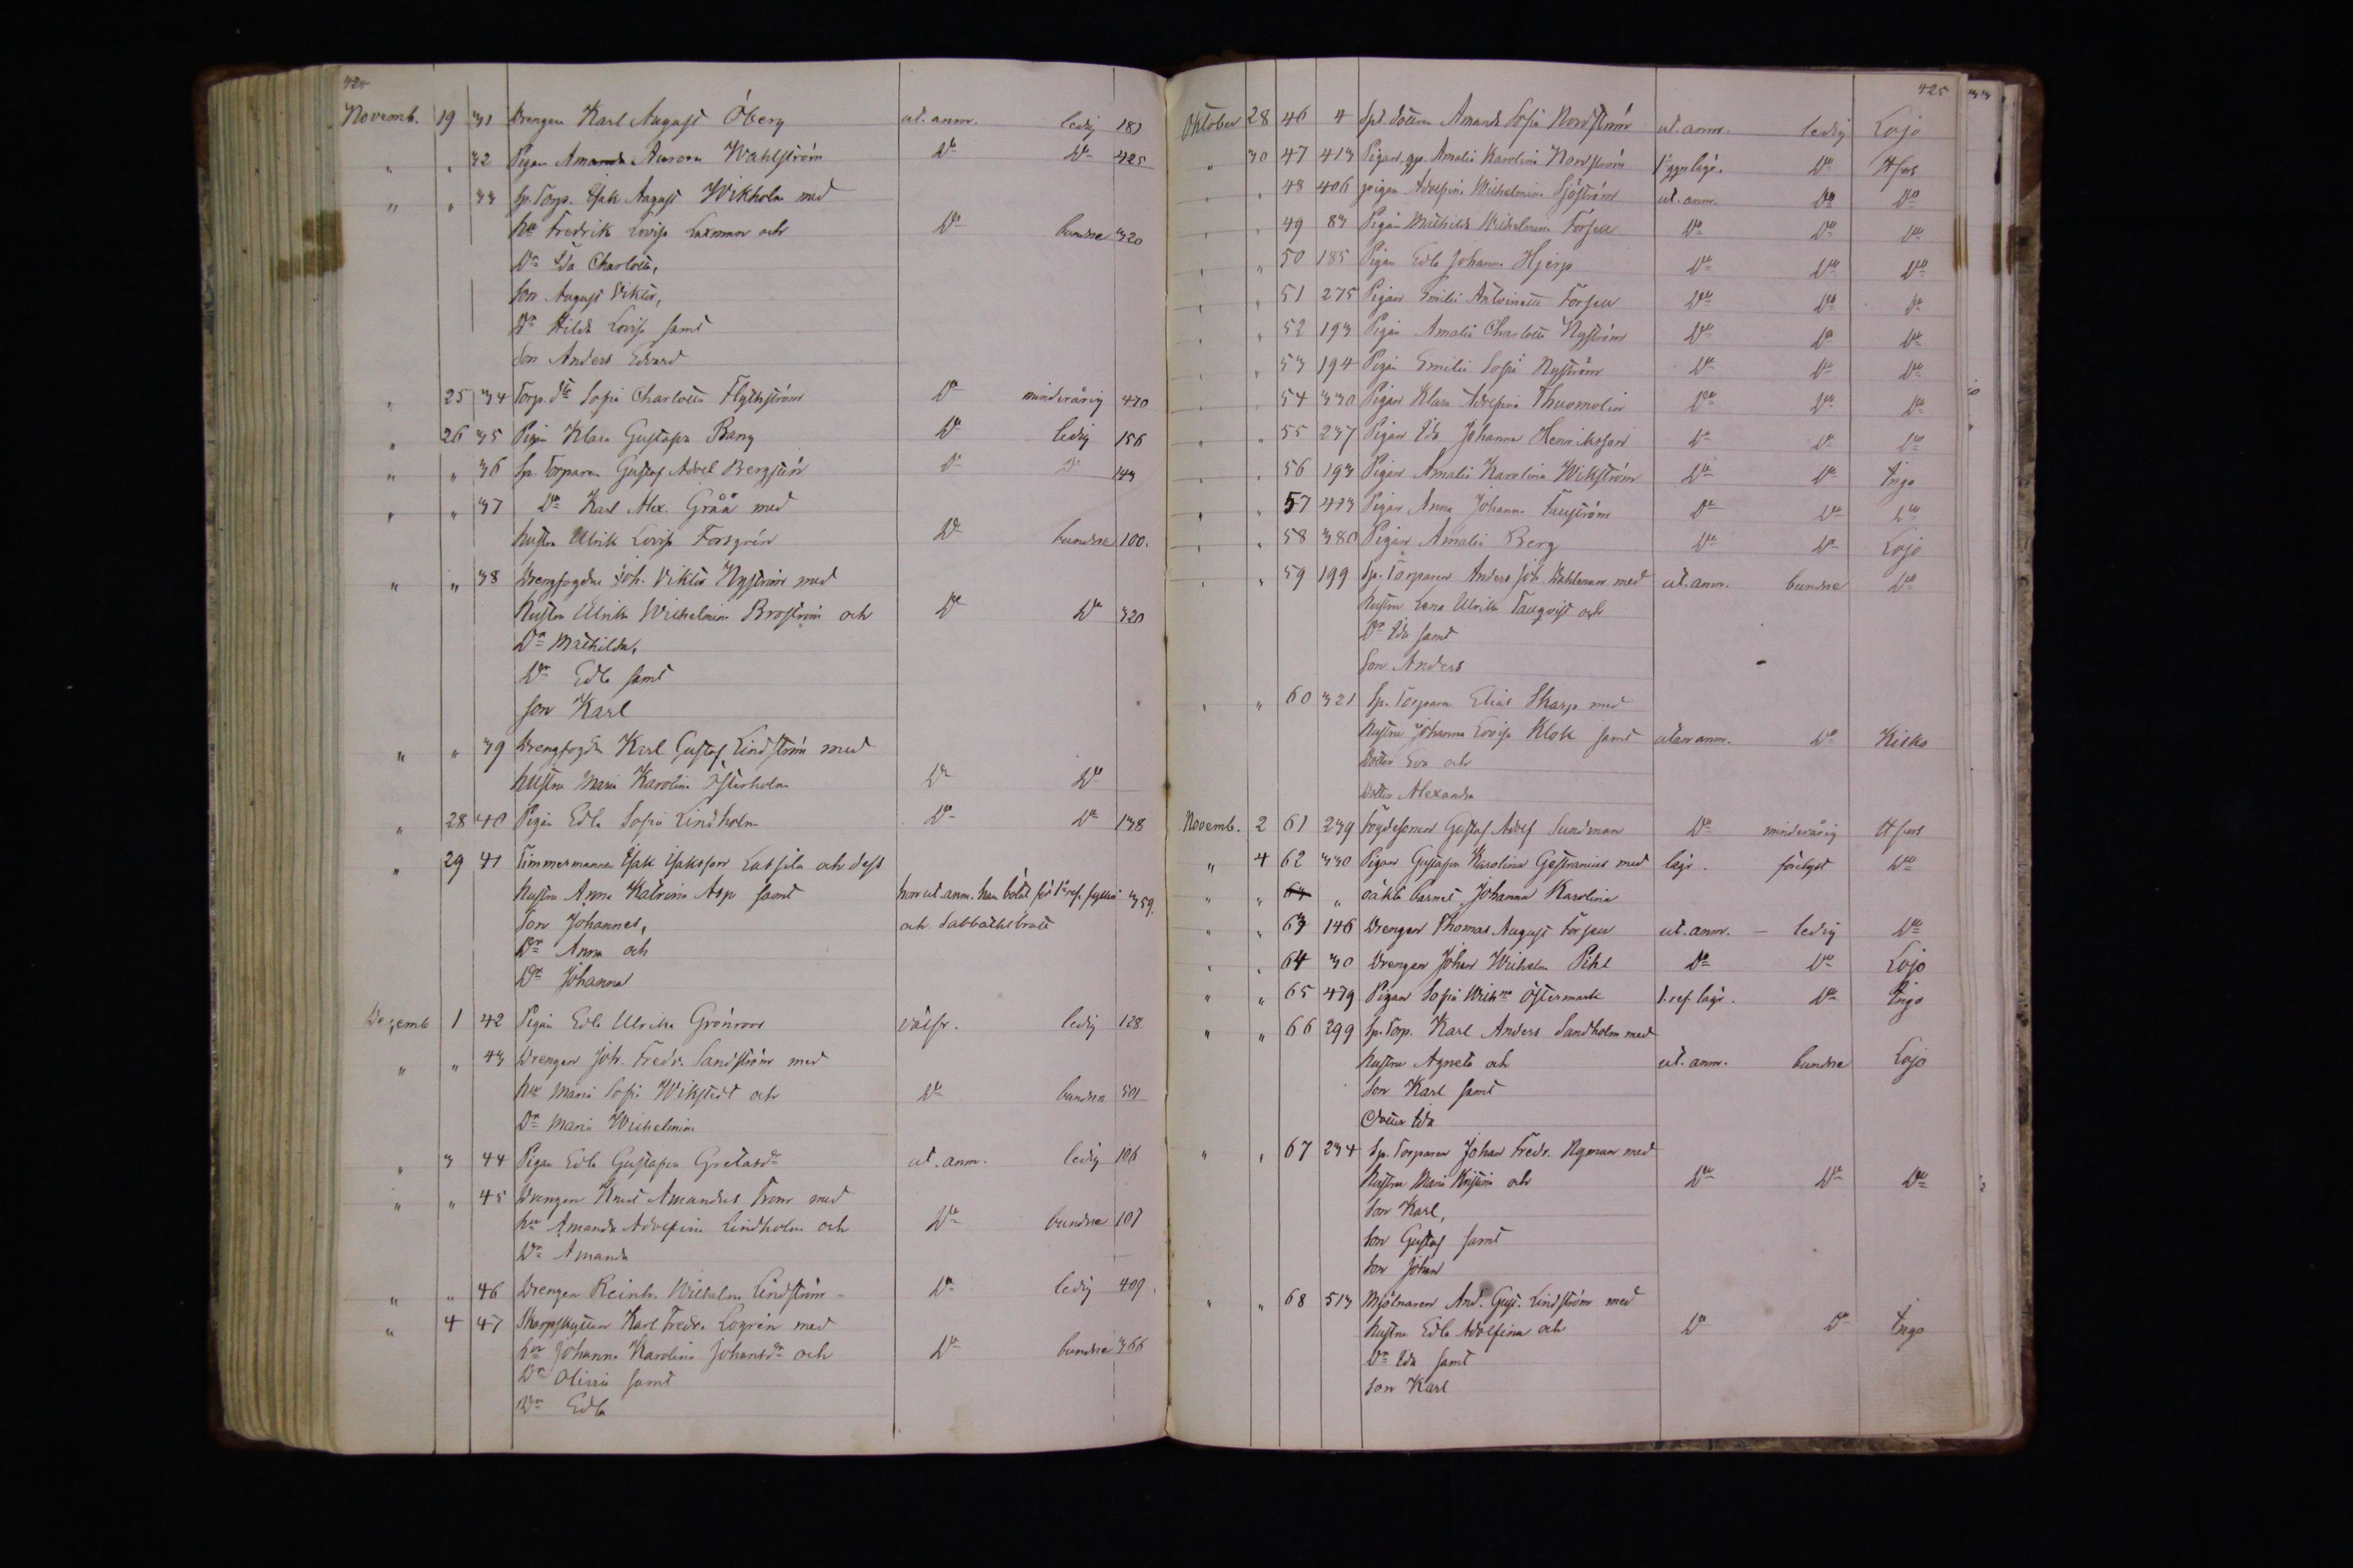 425
Novemb. 19 31 Drengen Karl August Öberg ut. anm. ledig 181
" " 32 Pigan Amanda Aurora Wahlström Do Do 425
" " 33 Sp. Torp. Isak August Wikholm med
hu Fredrik Lovisa Laxman och Do bundne 320
Dr Ida Charlotta,
Son August Viktor,
Dr Hilda Lovisa samt
Son Anders Edvard
" 25 34 Torp. dtr Sofia Charlotta Flythström Do minderårig 470
" 26 35 Pigan Klara Gustafva Bang Do ledig 156
" " 36 Sp. Torparen Gustaf Adolf Bergström Do Do 143
" " 37 Do Karl Alex. Gråå med
hustru Ulrik Lovisa Forsgrén Do bundne 100.
" " 38 Drengfogden Joh. Viktor Nyström med
Hustru Ulrika Wilhelmina Broström och Do Do 320
Dr Mathilda,
Dr Edla samt
Son Karl
" " 39 Drengfogden Karl Gustaf Lindström med
hustru Maria Karolina Österholm Do Do
" 28 40 Pigan Edla Sofia Lindholm Do Do 138
" 29 41 Timmermannen Isak Isaksson Lassila och dess
hustru Anna Katrina Asp samt hon ut. anm. han bött för 1a ref. fylleri 359.
Son Johannes, och sabbathsbrott
Dr Anna och
Dr Johanna
Decemb 1 42 Pigan Edla Ulrika Grönroos välfr. ledig 128
" " 43 Drengen Joh. Fredr. Sandström med
hu Maria Sofia Wikstedt och Do bundne 501
Dr Maria Wilhelmina
" 3 44 Pigan Edla Gustafva Gretasdr ut. anm. ledig 106
" " 45 Drengen Knut Amandus From med
hu Amanda Adolfina Lindholm och Do bundne 107
Dr Amanda
" " 46 Drengen Reinh. Wilhelm Lindström Do ledig 409.
" 4 47 Skarpskytten Karl Fredr. Logrén med
hu Johanna Karolina Johansdr och Do bundne 366
Dr Olivia samt
Dr Edla
425
Oktober 28 46 4 Spl. dottren Amanda Sofia Nordström ut. anm. ledig Lojo
" 30 47 413 Pigan Amalia Karolina Nordström 1a ggn lägr. Do Hfors
" " 48 406 pigan Adolfina Wilhelmina Sjöström ut. anm. Do Do
" " 49 83 Pigan Mathilda Wilhelmina Forsell Do Do Do
" " 50 185 Pigan Edla Johanna Hjerp Do Do Do
" " 51 275 Pigan Emilia Antoinetta Forsell Do Do Do
" " 52 193 Pigan Amalia Charlotta Nyström Do Do Do
" " 53 194 Pigan Emilia Sofia Nyström Do Do Do
" " 54 330 Pigan Klara Adolfina Thusmolin Do Do Do
" " 55 237 Pigan Ida Johanna Henriksson Do Do Do
" " 56 193 Pigan Amalia Karolina Wikström Do Do Ingo
" " 57 413 Pigan Anna Johanna Tallström Do Do Do
" " 58 380 Pigan Amalia Berg Do Do Lojo
" " 59 199 Sp. Torparen Anders Joh. Wahlman med ut. anm. bundne Do
hustru Lena Ulrika Tallqvist och
Dr Ida samt
Son Anders
" " 60 321 Sp. Torparen Elias Skarp med
hustru Johanna Lovisa Klok samt utan anm. Do Kisko
Dotter Eva och
Dotter Alexandra
Novemb. 2 61 239 Fogdesonen Gustaf Adolf Sundman Do minderårig Hfors
" 4 62 330 Pigan Gustafva Karolina Gestranius med lägr. förelyst Do
" " 64 " oäkta barnet Johanna Karolina
" " 63 146 Drengen Thomas August Forsell ut. anm. – ledig Do
" " 64 30 Drengen Johan Wilhelm Pihl Do Do Lojo
" " 65 479 Pigan Sofia Wilhna Östermark 1. ref. lägr. Do Ingo
" " 66 299 Sp. Torp. Karl Anders Sandholm med
hustru Agneta och ut. anm. bundne Lojo
Son Karl samt
Dotter Ida
" " 67 234 Sp. Torparen Johan Fredr. Nyman med
hustru Maria Kristina och Do Do Do
Son Karl,
Son Gustaf samt
Son Johan
" " 68 513 Mjölnaren And. Gust. Lindström med
hustru Edla Adolfina och Do Do Ingo
Dr Ida samt
Son Karl